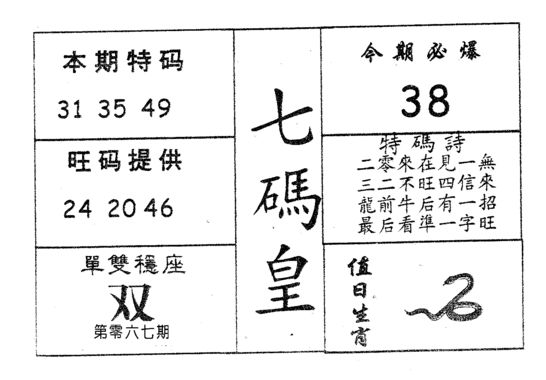 本期特码
31 35 49
旺码提供
24 20 46
單雙穩座
双
第零六七期
七碼皇
今期必爆
38
特碼詩
二零來在見一無
三二不旺四信來
龍前牛后有一招
最后看準一字旺
值日生肖